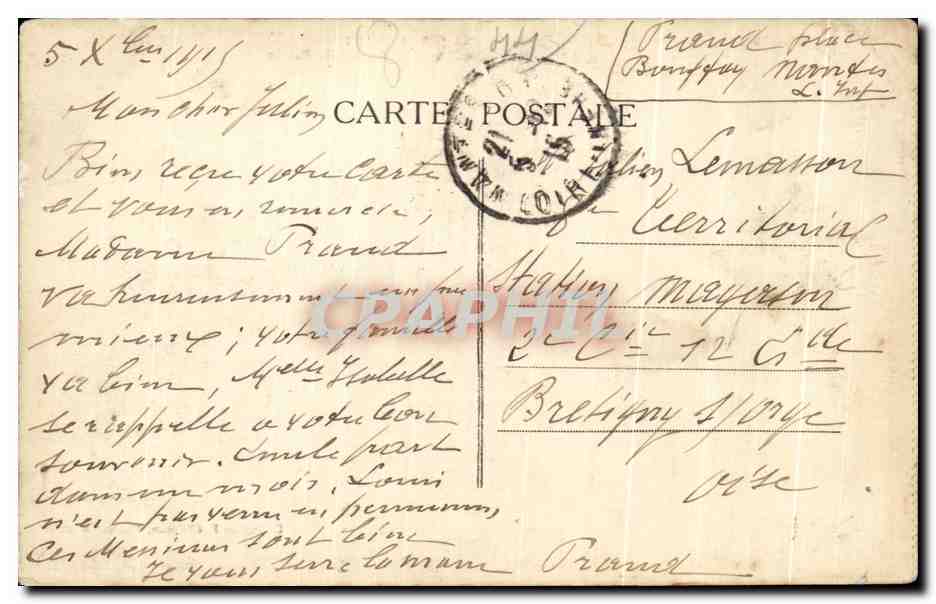 5 Xbre 1915
44
Praud place
Bouffay Nantes
L. Inf
Mon cher Julien
CARTE POSTALE
NANTES
21
15
LOIRE-INF
Bien reçu votre carte
et vous en remercie,
Madame Praud
va heureusement un peu
mieux; votre famille
va bien, Melle Isabelle
se rappelle a votre bon
souvenir. Emile part
dans un mois, Louis
n'est pas venu en permission,
Ces Messieurs sont bien
Je vous serre la main Praud
Julien Lemasson
Territorial
Station magasin
2e Cie 12 Gde
Bretigny s/orge
oise
CPAPHIL